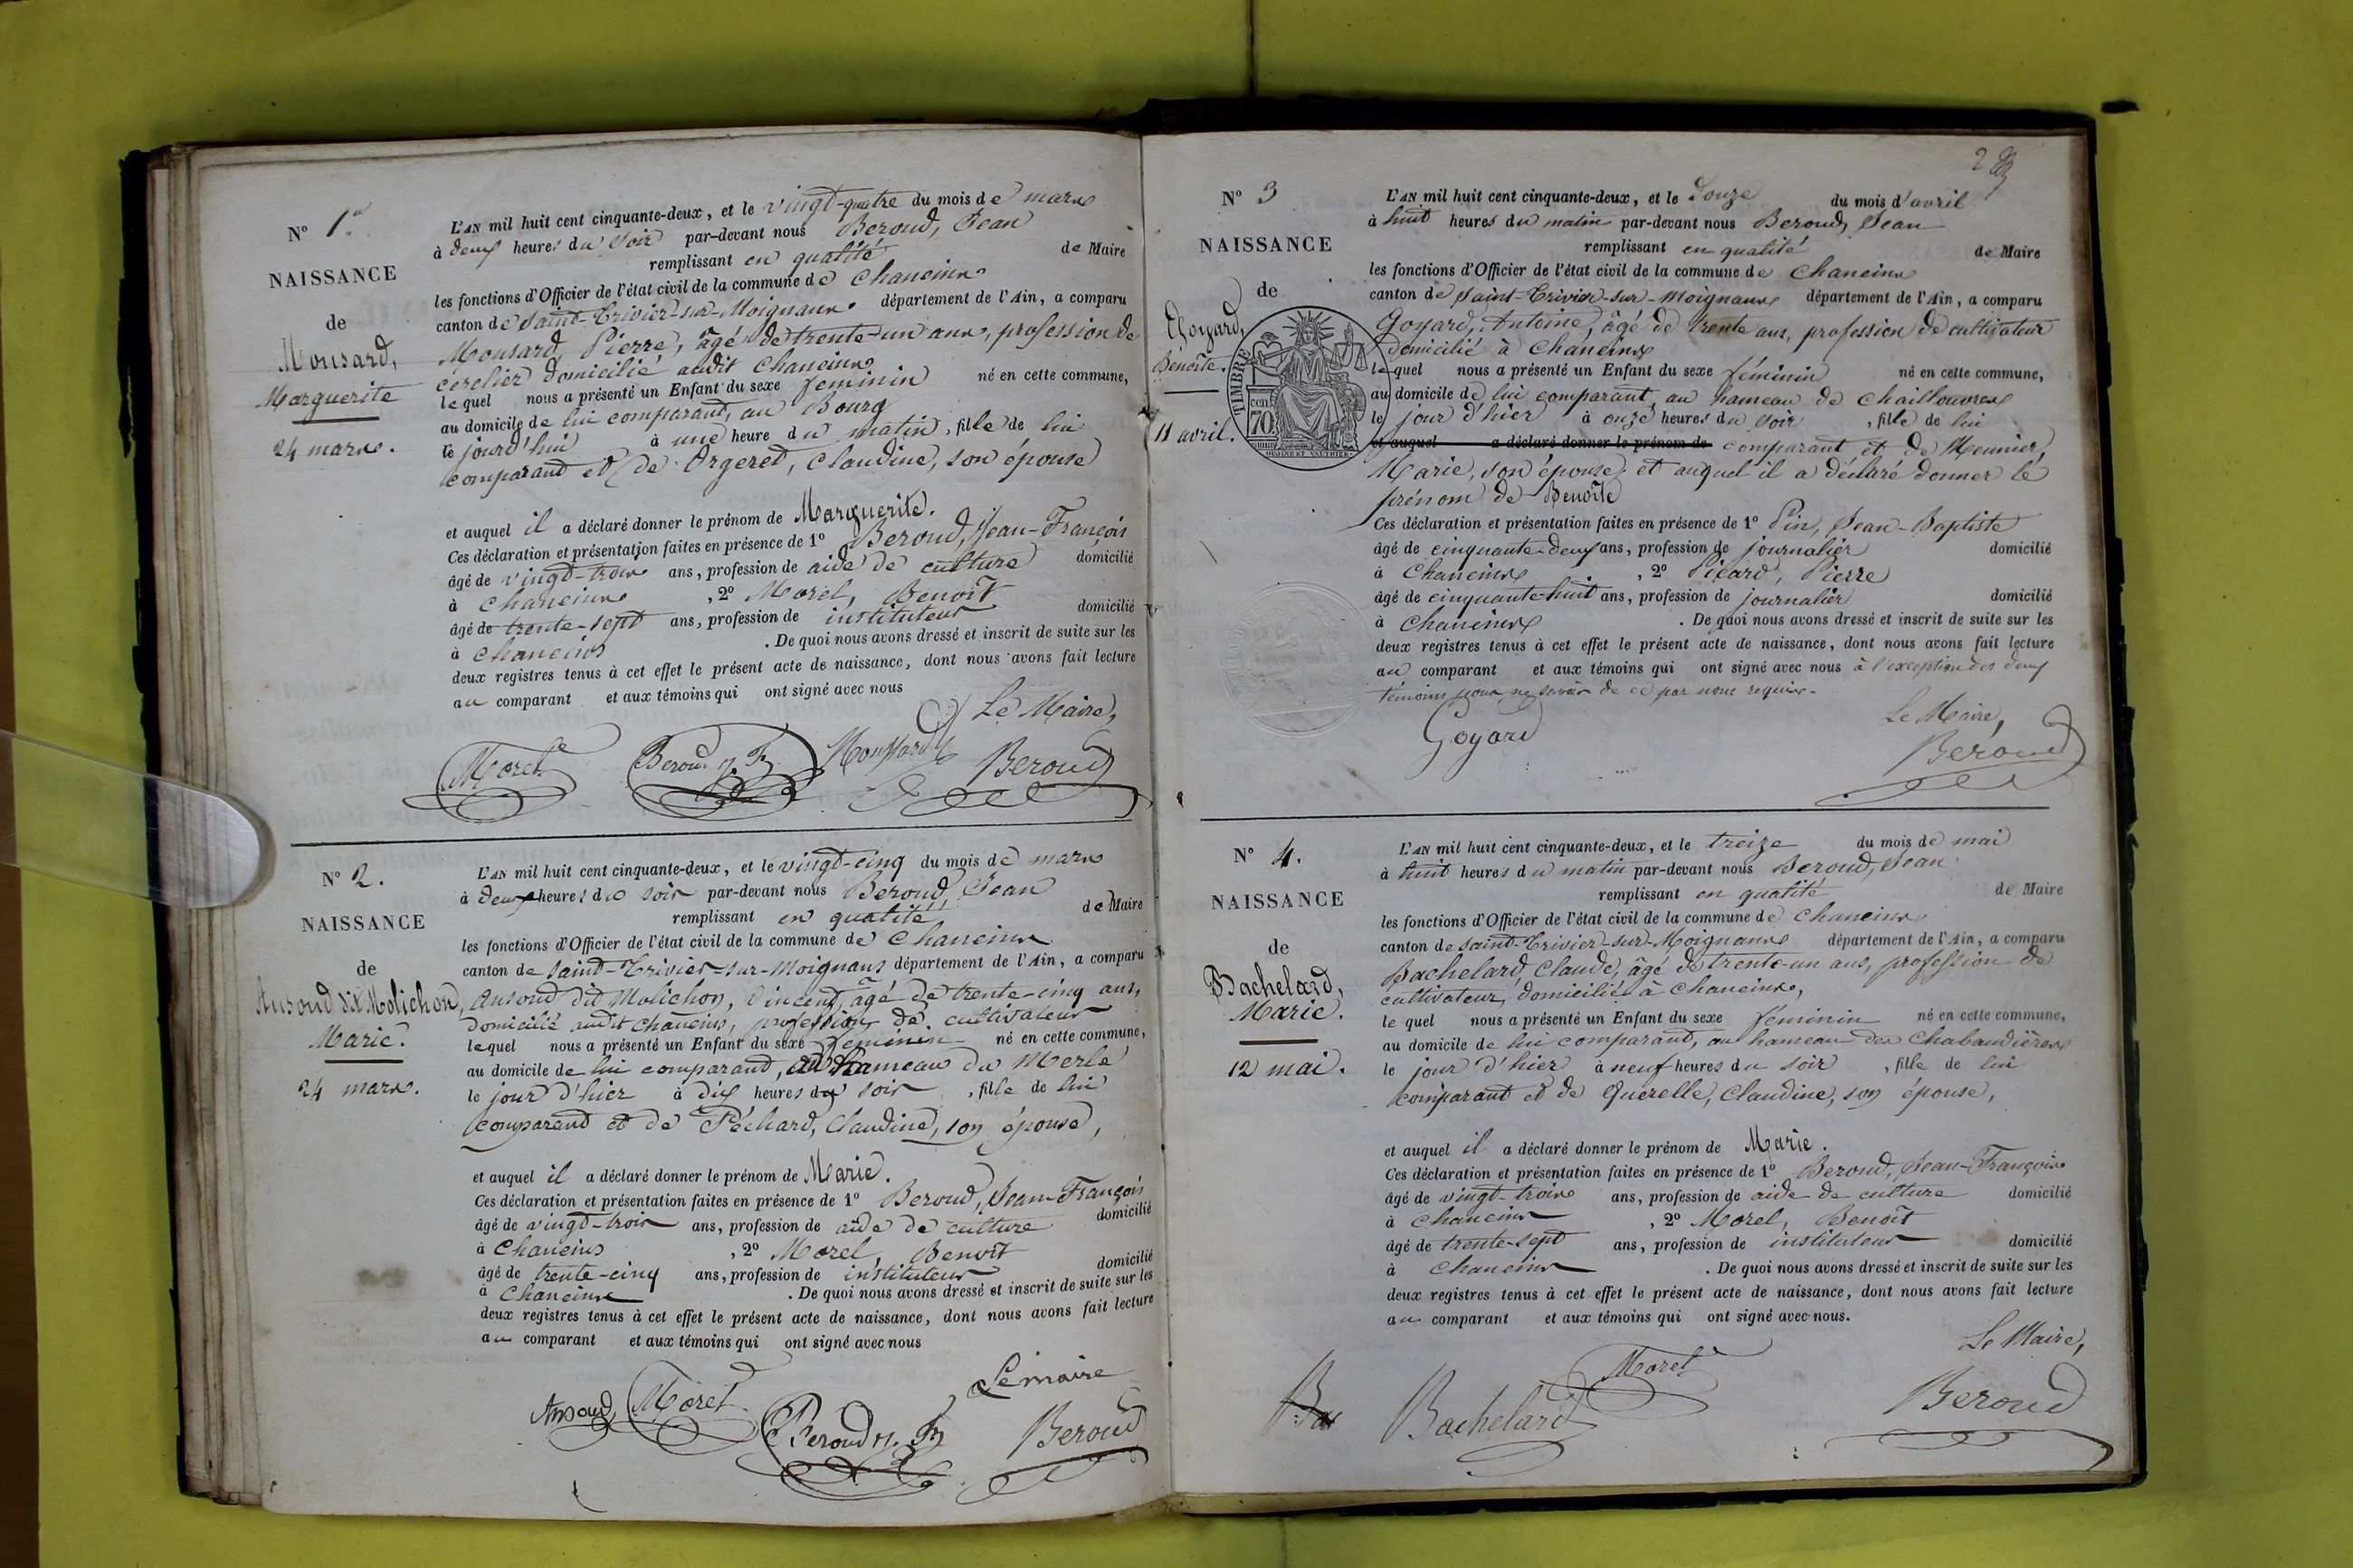 N° 1er
NAISSANCE
de
Mousard,
Marguerite
24 mars.
L'AN mil huit cent cinquante-deux, et le vingt-quatre du mois de mars
à deux heures du soir par-devant nous Beroud, Jean
remplissant en qualité de Maire
les fonctions d'Officier de l'état civil de la commune de Chaneins
canton de Saint-Trivier-sur-Moignans département de l'Ain, a comparu
Mousard, Pierre, âgé de trente-un ans, profession de
cerclier domicilié audit Chaneins
lequel nous a présenté un Enfant du sexe féminin né en cette commune,
au domicile de lui comparant, au Bourg
le jourd'hui à une heure du matin, fille de lui
comparant et de Orgeret, Claudine, son épouse
et auquel il a déclaré donner le prénom de Marguerite.
Ces déclaration et présentation faites en présence de 1° Beroud, Jean-François
âgé de vingt-trois ans, profession de aide de culture domicilié
à Chaneins, 2° Morel, Benoît
âgé de trente-sept ans, profession de instituteur domicilié
à Chaneins. De quoi nous avons dressé et inscrit de suite sur les
deux registres tenus à cet effet le présent acte de naissance, dont nous avons fait lecture
au comparant et aux témoins qui ont signé avec nous
Le Maire,
Morel Beroud J. F. Moussard Beroud
N° 2.
NAISSANCE
de
Ansoud dit Molichon,
Marie.
24 mars.
L'AN mil huit cent cinquante-deux, et le vingt-cinq du mois de mars
à deux heures du soir par-devant nous Beroud, Jean
remplissant en qualité de Maire
les fonctions d'Officier de l'état civil de la commune de Chaneins
canton de Saint-Trivier-sur-Moignans département de l'Ain, a comparu
Ansoud dit Molichon, Vincent, âgé de trente-cinq ans,
domicilié audit Chaneins, profession de cultivateur
lequel nous a présenté un Enfant du sexe féminin né en cette commune,
au domicile de lui comparant, au hameau du Merle
le jour d'hier à dix heures du soir, fille de lui
comparant et de Péchard, Claudine, son épouse,
et auquel il a déclaré donner le prénom de Marie.
Ces déclaration et présentation faites en présence de 1° Beroud, Jean-François
âgé de vingt-trois ans, profession de aide de culture domicilié
à Chaneins, 2° Morel, Benoît
âgé de trente-cinq ans, profession de instituteur domicilié
à Chaneins. De quoi nous avons dressé et inscrit de suite sur les
deux registres tenus à cet effet le présent acte de naissance, dont nous avons fait lecture
au comparant et aux témoins qui ont signé avec nous
Le maire
Ansoud Morel Beroud J. F. Beroud
2
N° 3
NAISSANCE
de
Goyard,
Benoîte.
11 avril.
TIMBRE
70 cent
L'AN mil huit cent cinquante-deux, et le douze du mois d'avril
à huit heures du matin par-devant nous Beroud, Jean
remplissant en qualité de Maire
les fonctions d'Officier de l'état civil de la commune de Chaneins
canton de Saint-Trivier-sur-Moignans département de l'Ain, a comparu
Goyard, Antoine, âgé de trente ans, profession de cultivateur
domicilié à Chaneins
lequel nous a présenté un Enfant du sexe féminin né en cette commune,
au domicile de lui comparant, au hameau de Chaillouvres
le jour d'hier à onze heures du soir, fille de lui
et auquel a déclaré donner le prénom de comparant et de Meunier,
Marie, son épouse, et auquel il a déclaré donner le
prénom de Benoîte
Ces déclaration et présentation faites en présence de 1° Pin, Jean-Baptiste
âgé de cinquante-deux ans, profession de journalier domicilié
à Chaneins, 2° Picard, Pierre
âgé de cinquante-huit ans, profession de journalier domicilié
à Chaneins. De quoi nous avons dressé et inscrit de suite sur les
deux registres tenus à cet effet le présent acte de naissance, dont nous avons fait lecture
au comparant et aux témoins qui ont signé avec nous à l'exception des deux
témoins pour ne savoir de ce par nous requis.
Le Maire,
Goyard Beroud
N° 4.
NAISSANCE
de
Bachelard,
Marie.
12 mai.
L'AN mil huit cent cinquante-deux, et le treize du mois de mai
à huit heures du matin par-devant nous Beroud, Jean
remplissant en qualité de Maire
les fonctions d'Officier de l'état civil de la commune de Chaneins
canton de Saint-Trivier-sur-Moignans département de l'Ain, a comparu
Bachelard, Claude, âgé de trente-un ans, profession de
cultivateur, domicilié à Chaneins,
lequel nous a présenté un Enfant du sexe féminin né en cette commune,
au domicile de lui comparant, au hameau des Chabaudières
le jour d'hier à neuf heures du soir, fille de lui
comparant et de Querelle, Claudine, son épouse,
et auquel il a déclaré donner le prénom de Marie.
Ces déclaration et présentation faites en présence de 1° Beroud, Jean-François
âgé de vingt-trois ans, profession de aide de culture domicilié
à Chaneins, 2° Morel, Benoît
âgé de trente-sept ans, profession de instituteur domicilié
à Chaneins. De quoi nous avons dressé et inscrit de suite sur les
deux registres tenus à cet effet le présent acte de naissance, dont nous avons fait lecture
au comparant et aux témoins qui ont signé avec nous.
Le Maire,
Bac Bachelard Morel Beroud